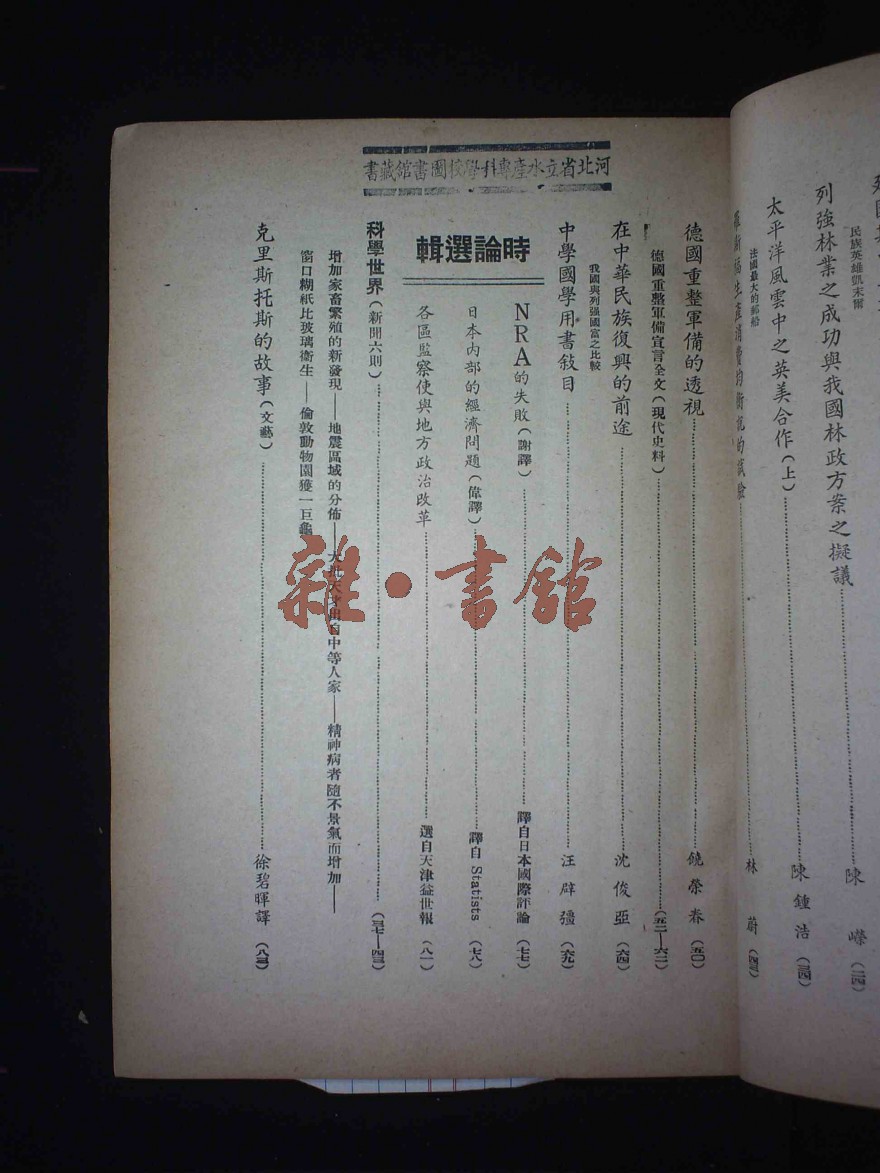 河北省立水產專科學校圖書館藏書
民族英雄凱末爾
列強林業之成功與我國林政方案之擬議……陳嶸(二四)
太平洋風雲中之英美合作(上)……陳鍾浩(三四)
法國最大的郵船
林蔚(四三)
德國重整軍備的透視……饒榮春(五〇)
德國重整軍備宣言全文(現代史料)……(五二—六二)
在中華民族復興的前途……沈俊亞(六四)
我國與列强國富之比較
中學國學用書敍目……汪辟疆(六九)
時論選輯
NRA的失敗(謝譯)……譯自日本國際評論(七七)
日本內部的經濟問題(偉譯)……譯自 Statists(七八)
各區監察使與地方政治改革……選自天津益世報(八一)
科學世界(新聞六則)……(三七—四三)
增加家畜繁殖的新發現——地震區域的分佈——大批天才出自中等人家——精神病者隨不景氣而增加——
窗口糊紙比玻璃衛生——倫敦動物園獲一巨龜
克里斯托斯的故事(文藝)……徐碧暉譯(八三)
雜·書館